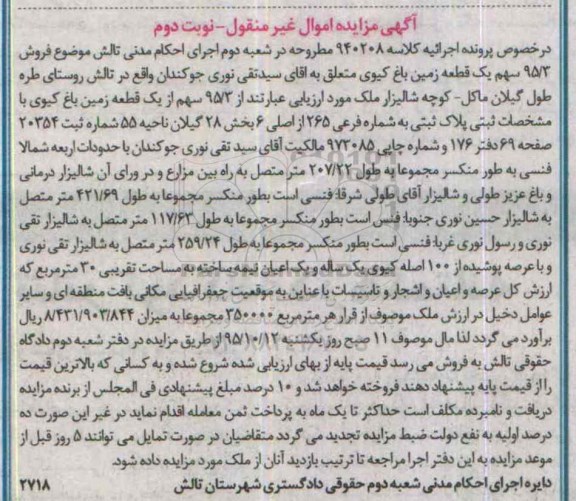 آگهی مزایده اموال غیر منقول-نوبت دوم
درخصوص پرونده اجرائیه کلاسه ۹۴۰۲۰۸ مطروحه در شعبه دوم اجرای احکام مدنی تالش موضوع فروش
۹۵/۳ سهم یک قطعه زمین باغ کیوی متعلق به اقای سیدتقی نوری جوکندان واقع در تالش روستای طره
طول گیلان ماکل- کوچه شالیزار ملک مورد ارزیابی عبارتند از ۹۵/۳ سهم از یک قطعه زمین باغ کیوی با
مشخصات ثبتی پلاک ثبتی به شماره فرعی ۲۶۵ از اصلی ۶ بخش ۲۸ گیلان ناحیه ۵۵ شماره ثبت ۲۰۳۵۴
صفحه ۶۹ دفتر ۱۷۶ و شماره چاپی ۹۷۲۰۸۵ مالکیت آقای سید تقی نوری جوکندان با حدودات اربعه شمالا
فنسی به طور منکسر مجموعا به طول ۲۰۷/۲۲ متر متصل به راه بین مزارع و در ورای آن شالیزار درمانی
و باغ عزیز طولی و شالیزار آقای طولی شرقا: فنسی است بطور منکسر مجموعا به طول ۴۲۱/۶۹ متر متصل
به شالیزار حسین نوری جنوبا: فنس است بطور منکسر مجموعا به طول ۱۱۷/۶۳ متر متصل به شالیزار تقی
نوری و رسول نوری غربا: فنسی است بطور منکسر مجموعا به طول ۲۵۹/۲۴ متر متصل به شالیزار تقی نوری
و با عرصه پوشیده از ۱۰۰ اصله کیوی یک ساله و یک اعیان نیمه ساخته به مساحت تقریبی ۳۰ مترمربع که
ارزش کل عرصه و اعیان و اشجار و تاسیسات با عناین به موقعیت جعفرافیایی مکانی بافت منطقه ای و سایر
عوامل دخیل در ارزش ملک موصوف از قرار هر مترمربع ۳۵۰۰۰۰ مجموعا به میزان ۸/۴۳۱/۹۰۳/۸۴۴ ریال
برآورد می گردد لذا مال موصوف ۱۱ صبح روز یکشنبه ۹۵/۱۰/۱۲ از طریق مزایده در دفتر شعبه دوم دادگاه
حقوقی تالش به فروش می رسد قیمت پایه از بهای ارزیابی شده شروع شده و به کسانی که بالاترین قیمت
را از قیمت پایه پیشنهاد دهند فروخته خواهد شد و ۱۰ درصد مبلغ پیشنهادی فی المجلس از برنده مزایده
دریافت و نامبرده مکلف است حداکثر تا یک ماه به پرداخت ثمن معامله اقدام نماید در غیر این صورت ده
درصد اولیه به نفع دولت ضبط مزایده تجدید می گردد متقاضیان در صورت تمایل می توانند ۵ روز قبل از
موعد مزایده به این دفتر اجرا مراجعه تا ترتیب بازدید آنان از ملک مورد مزایده داده شود.
دایره اجرای احکام مدنی شعبه دوم حقوقی دادگستری شهرستان تالش
۲۷۱۸